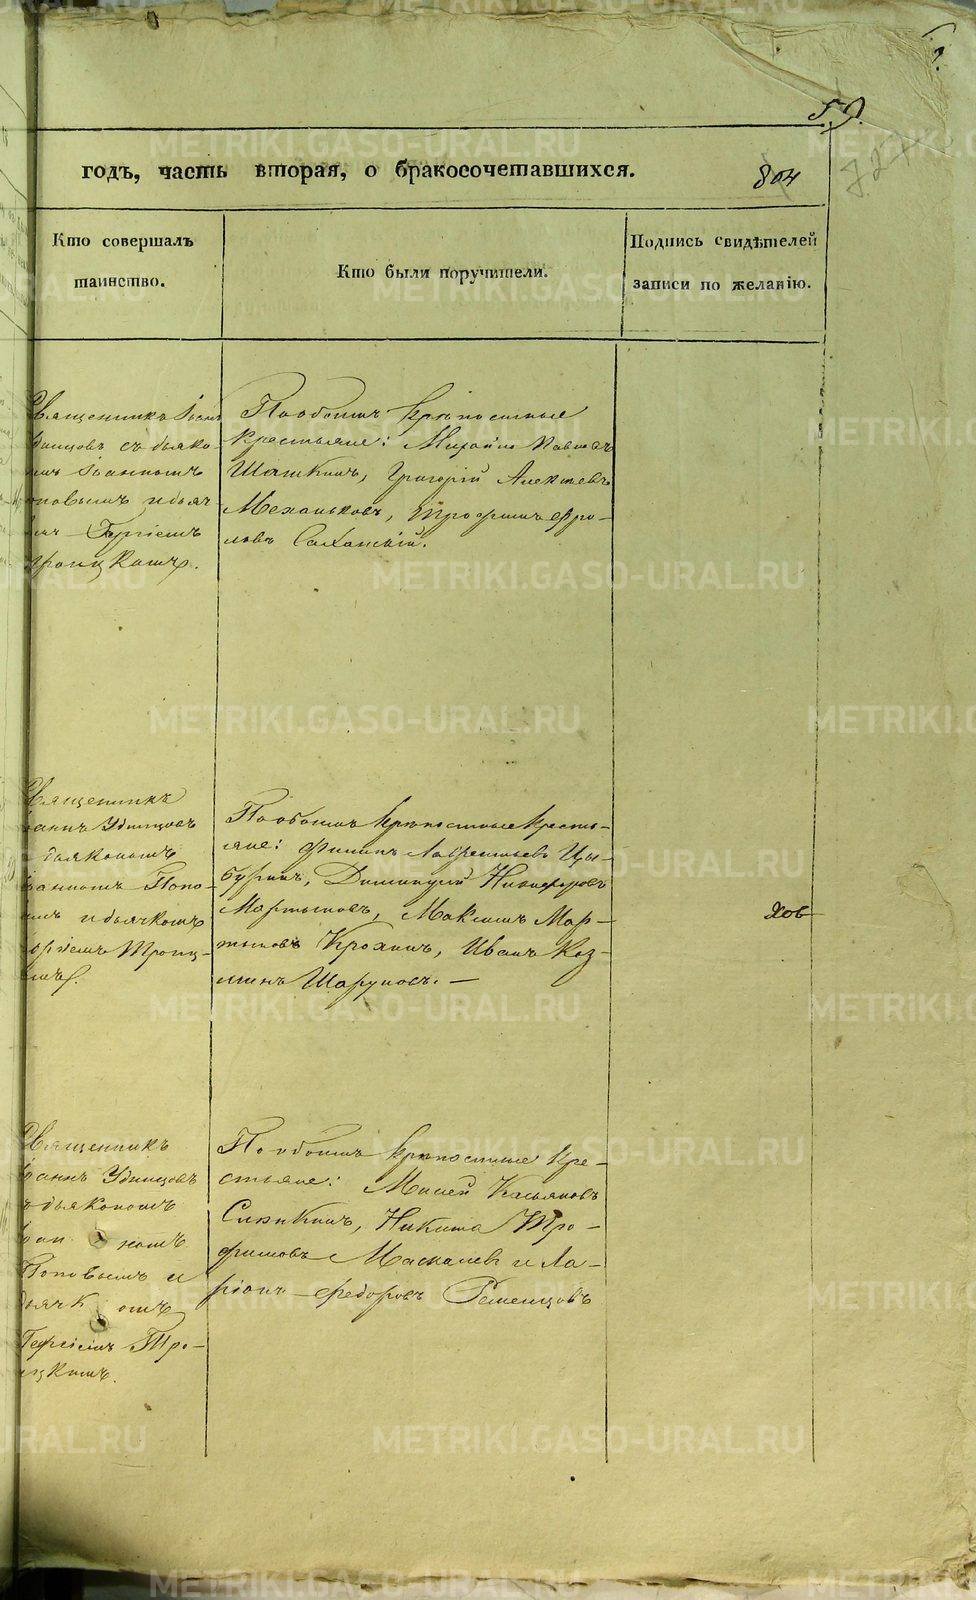 59.
годъ, часть вторая, о бракосочетавшихся.
804
727
Кто совершалъ
таинство.
Кто были поручители.
Подпись свидѣтелей
записи по желанію.
Священникъ Іоаннъ
Удинцовъ съ дьяко-
номъ Іоанномъ
Поповымъ и дьяч-
Троицкимъ.
По обоимъ крѣпостные
крестьяне: Михайло Павловъ
Шашкинъ, Григорій Алексѣевъ
Механьковъ, Трофимъ Фро-
ловъ
Священникъ
Іоаннъ Удинцовъ
съ дьякономъ
Іоанномъ Попо-
вымъ и дьячкомъ
Георгіемъ Троиц-
кимъ.
По обоимъ крѣпостные кресть-
яне: Филипъ Лаврентьевъ Цы-
буринъ, Димитрій Никифоровъ
Мартыновъ, Максимъ Мар-
тыновъ Крохинъ, Иванъ Коз-
минъ Шаруновъ. —
хов
Священникъ
Іоаннъ Удинцовъ
съ дьякономъ
Іоанномъ
Поповымъ и
дьячкомъ
Георгіемъ Тро-
ицкимъ.
По обоимъ крѣпостные кре-
стьяне: Мисей Касьяновъ
Никита Тро-
фимовъ Маскалевъ и Ла-
ріонъ Федоровъ Ременцовъ
METRIKI.GASO-URAL.RU